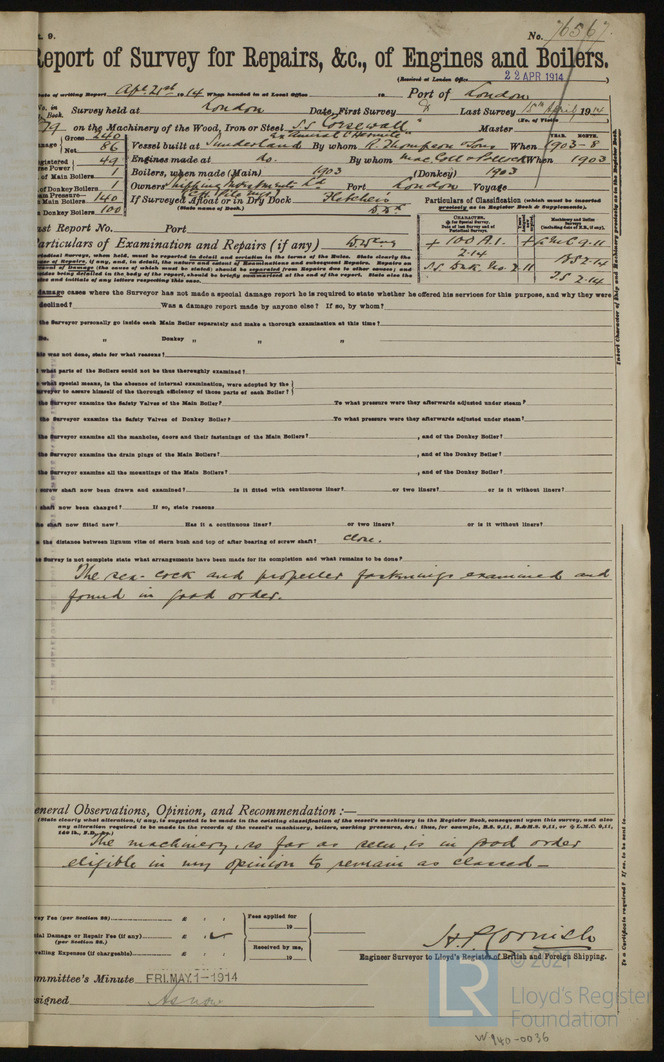 t. 9.
No. 76567.
Report of Survey for Repairs, &c., of Engines and Boilers.
(Received at London Office 22 APR 1914)
Date of writing Report Apl 21st 1914 When handed in at Local Office to Port of London
No. in Reg. Book. Survey held at London Date, First Survey Last Survey 15th April 1914
(No. of Visits)
79 on the Machinery of the Wood, Iron or Steel S.S. Master
Gross 240
Net 86 Vessel built at Sunderland By whom R. Thompson & Sons When 1903-8
YEAR. MONTH.
Registered Horse Power 49 Engines made at do. By whom MacColl & Pollock When 1903
No. of Main Boilers 1 Boilers, when made (Main) 1903 (Donkey) 1903
No. of Donkey Boilers 1 Owners Shipping Investments Ld Port London Voyage
Steam Pressure in Main Boilers 140 If Surveyed Afloat or in Dry Dock Fletcher's
(State name of Dock.)
in Donkey Boilers 100
Particulars of Classification (which must be inserted precisely as in Register Book & Supplements).
CHARACTER,
Machinery and Boiler Surveys
(including date of N.B., if any).
+ 100 A.1. + LMC 9-11
2.14 BS 2.14
TS 2.14
Last Report No. Port
Particulars of Examination and Repairs (if any)
damage cases where the Surveyor has not made a special damage report he is required to state whether he offered his services for this purpose, and why they were
declined? Was a damage report made by anyone else? If so, by whom?
the Surveyor personally go inside each Main Boiler separately and make a thorough examination at this time?
Do. " Donkey " " "
this was not done, state for what reasons?
what parts of the Boilers could not be thus thoroughly examined?
what special means, in the absence of internal examination, were adopted by the
Surveyor to assure himself of the thorough efficiency of those parts of each Boiler?
the Surveyor examine the Safety Valves of the Main Boiler? To what pressure were they afterwards adjusted under steam?
the Surveyor examine the Safety Valves of Donkey Boiler? To what pressure were they afterwards adjusted under steam?
the Surveyor examine all the manholes, doors and their fastenings of the Main Boilers? , and of the Donkey Boiler?
the Surveyor examine the drain plugs of the Main Boilers? , and of the Donkey Boiler?
the Surveyor examine all the mountings of the Main Boilers? , and of the Donkey Boiler?
screw shaft now been drawn and examined? Is it fitted with continuous liner? or two liners? or is it without liners?
shaft now been changed? If so, state reasons
the shaft now fitted new? Has it a continuous liner? or two liners? or is it without liners?
the distance between lignum vitæ of stern bush and top of after bearing of screw shaft? close.
the Survey is not complete state what arrangements have been made for its completion and what remains to be done?
The sea-cock and propeller fastenings examined and
found in good order.
General Observations, Opinion, and Recommendation :—
(State clearly what alteration, if any, is suggested to be made in the existing classification of the vessel's machinery in the Register Book, consequent upon this survey, and also
any alteration required to be made in the records of the vessel's machinery, boilers, working pressures, &c.: thus, for example, B.S. 9,11, B.&M.S. 9,11, or + L.M.C. 9,11,
140 lb., F.D., &c.)
The machinery, so far as seen, is in good order
eligible in my opinion to remain as classed —
Survey Fee (per Section 28) £ : :
Special Damage or Repair Fee (if any) £ : :
(per Section 28.)
Travelling Expenses (if chargeable) £ : :
Fees applied for
19
Received by me,
19
H. P. Cornish
Engineer Surveyor to Lloyd's Register of British and Foreign Shipping.
Committee's Minute FRI. MAY. 1-1914
Assigned As now
© 2021
LR
Lloyd's Register
Foundation
W940-0036